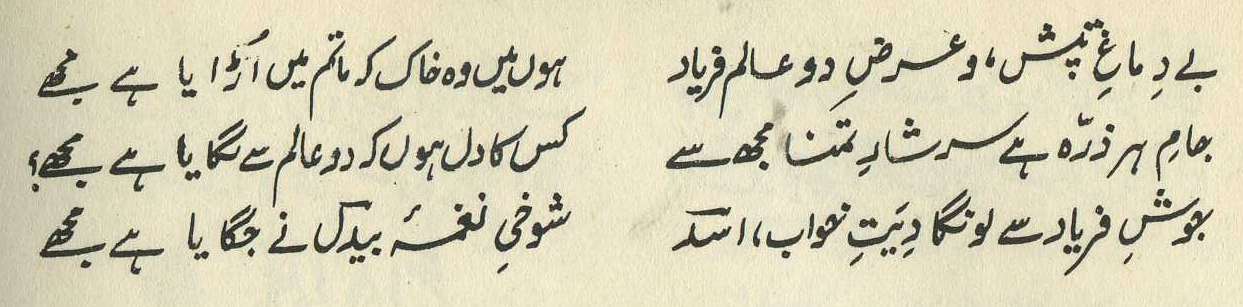 بے دِماغِ تپش، و عرضِ دو عالم فریاد ہوں میں وہ خاک کہ ماتم میں اُڑایا ہے مجھے
جامِ ہر ذرّہ ہے سرشارِ تمنّا مجھ سے کس کا دل ہوں کہ دو عالم سے لگایا ہے مجھے؟
جوشِ فریاد سے لونگا دِیَتِ خواب، اسدؔ شوخیِ نغمۂ بیدلؔ نے جگایا ہے مجھے